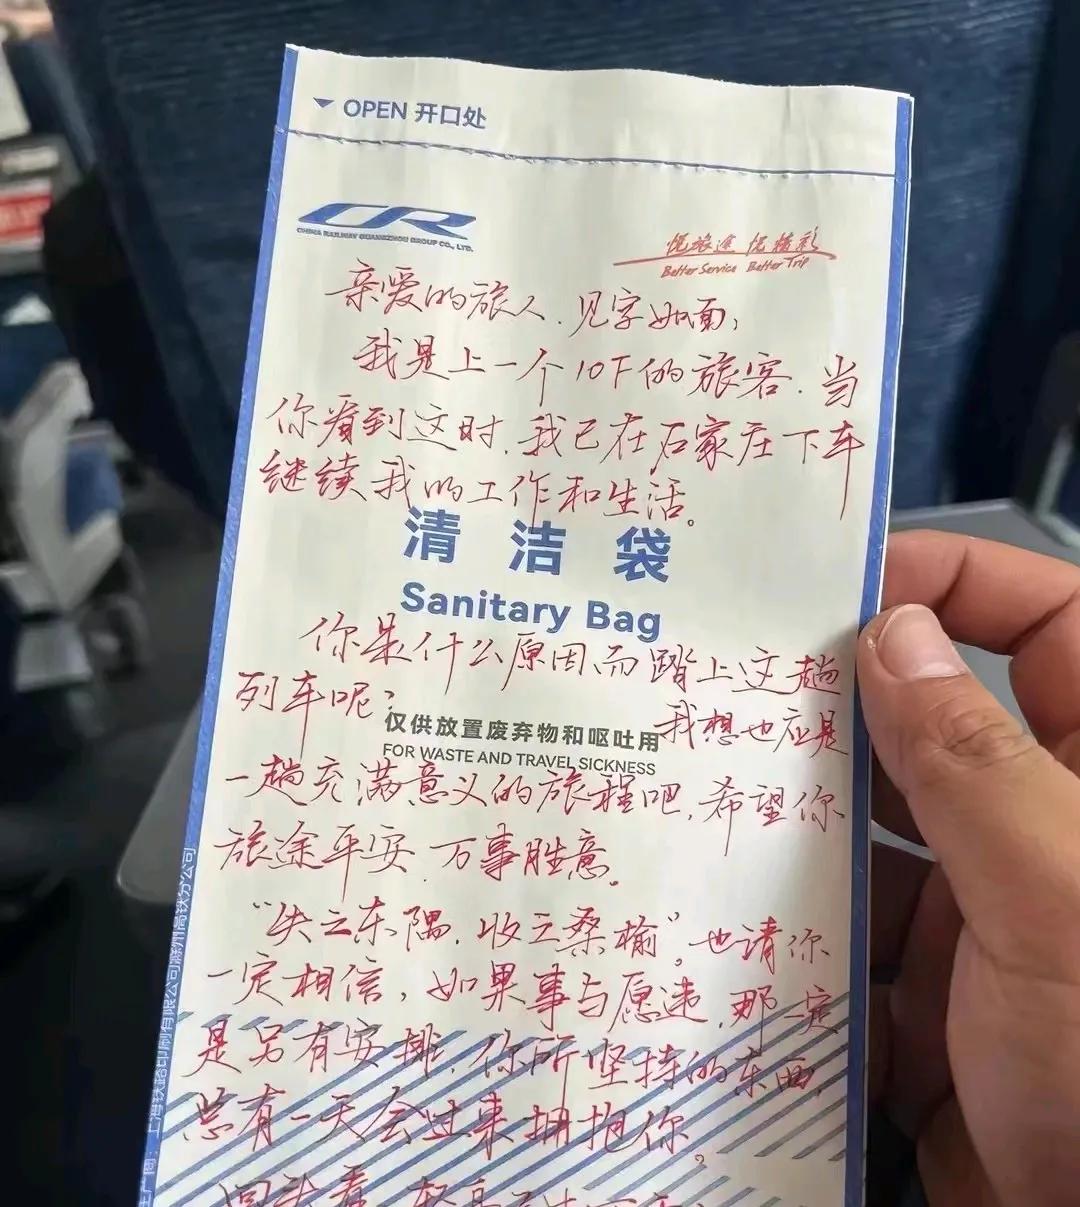 OPEN 开口处
CR
CHINA RAILWAY GUANGZHOU GROUP CO., LTD.
悦旅途 优精彩
Better Service Better Trip
亲爱的旅人、见字如面，
我是上一个10F的旅客、当
你看到这时，我已在石家庄下车
继续我的工作和生活。
清洁袋
Sanitary Bag
你是什么原因而踏上这趟
列车呢？
仅供放置废弃物和呕吐用
我想也应是
FOR WASTE AND TRAVEL SICKNESS
一趟充满意义的旅程吧，希望你
旅途平安、万事胜意。
“失之东隅，收之桑榆”。也请你
一定相信，如果事与愿违，那一定
是另有安排，你所坚持的东西，
总有一天会过来拥抱你。
回头看，轻舟已过万重
上海铁路印刷有限公司滁州高铁分公司